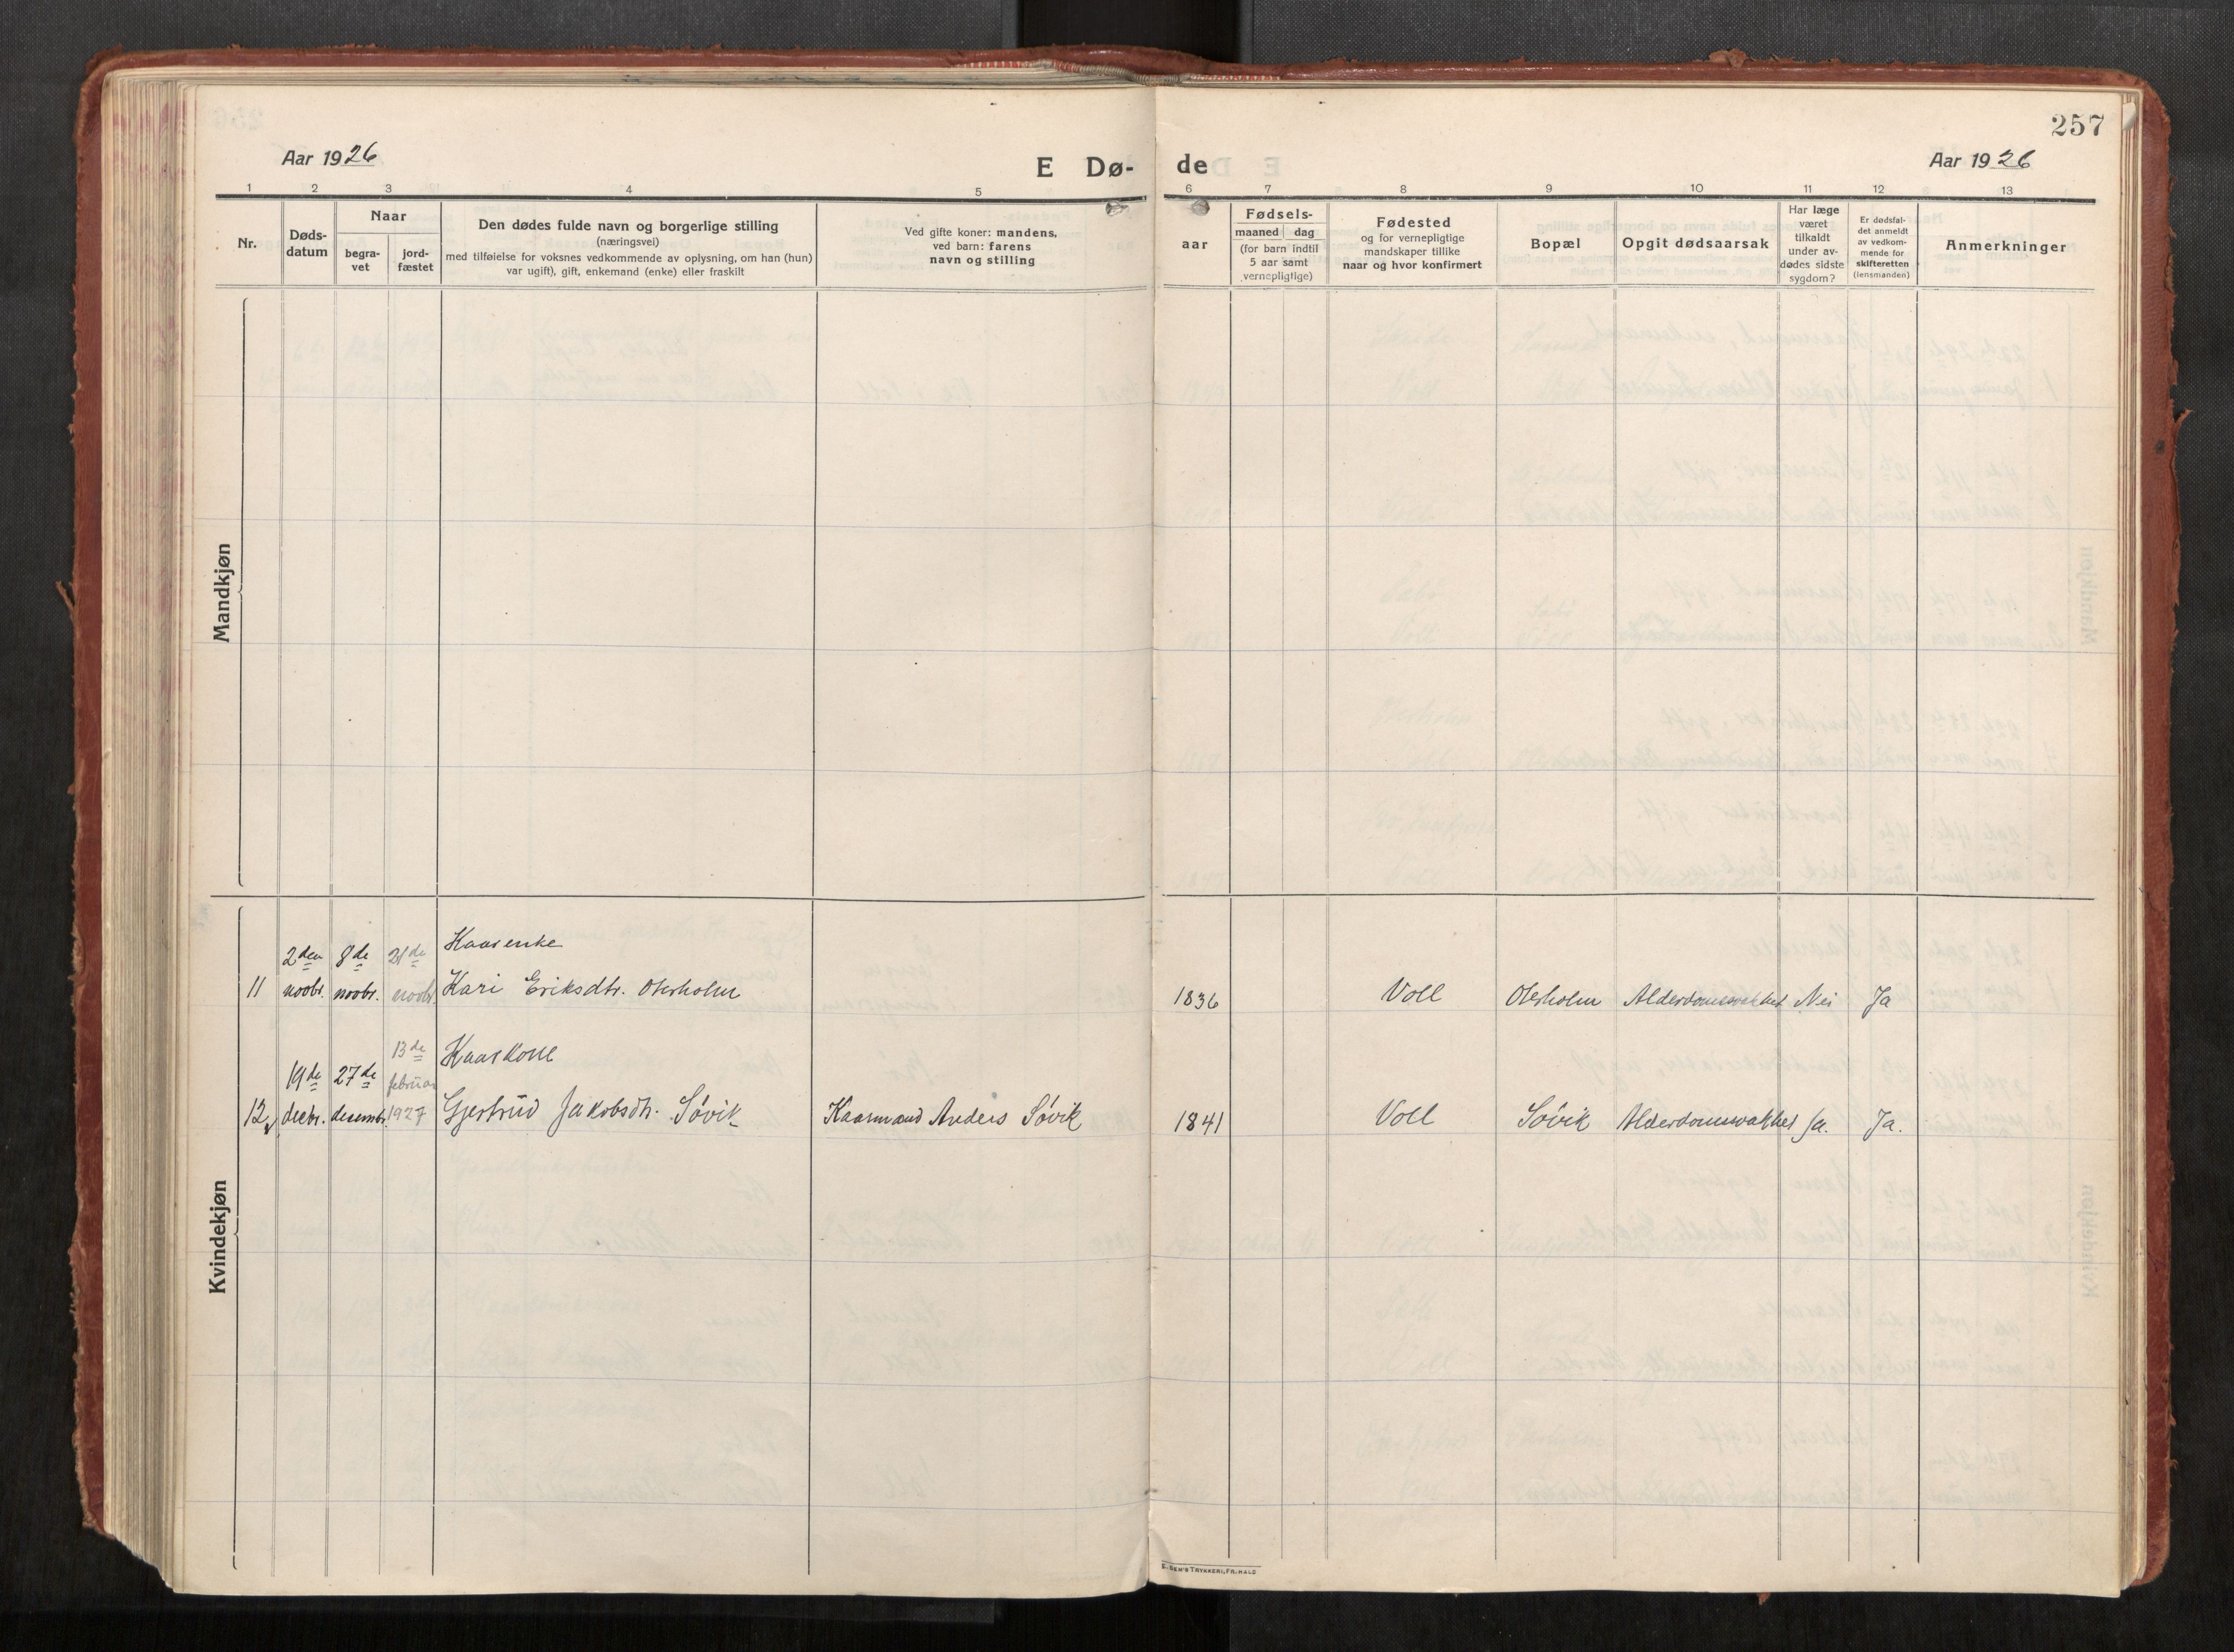 257
Aar 1926
E Dø-
de
Aar 1926
1 2 3 4 5 6 7 8 9 10 11 12 13
Nr.
Døds-
datum
Naar
begra-
vet
jord-
fæstet
Den dødes fulde navn og borgerlige stilling
(næringsvei)
med tilføielse for voksnes vedkommende av oplysning, om han (hun)
var ugift), gift, enkemand (enke) eller fraskilt
Ved gifte koner: mandens,
ved barn: farens
navn og stilling
aar
Fødsels-
maaned dag
(for barn indtil
5 aar samt
vernepligtige)
Fødested
og for vernepligtige
mandskaper tillike
naar og hvor konfirmert
Bopæl
Opgit dødsaarsak
Har læge
været
tilkaldt
under av-
dødes sidste
sygdom?
Er dødsfal-
det anmeldt
av vedkom-
mende for
skifteretten
(lensmanden)
Anmerkninger
Mandkjøn
Kvindekjøn
2den 8de 21de Kaarenke
11 novbr. novbr. novbr. Kari Eriksdtr. Oterholm 1836 Voll Oterholm Alderdomssvakhet Nei Ja
13de Kaarkone
19de 27de februar
12 decbr. desembr. 1927 Gjertrud Jakobsdtr. Søvik Kaarmand Anders Søvik 1841 Voll Søvik Alderdomssvakhet Ja. Ja.
TRYKKERI, FR.HALD